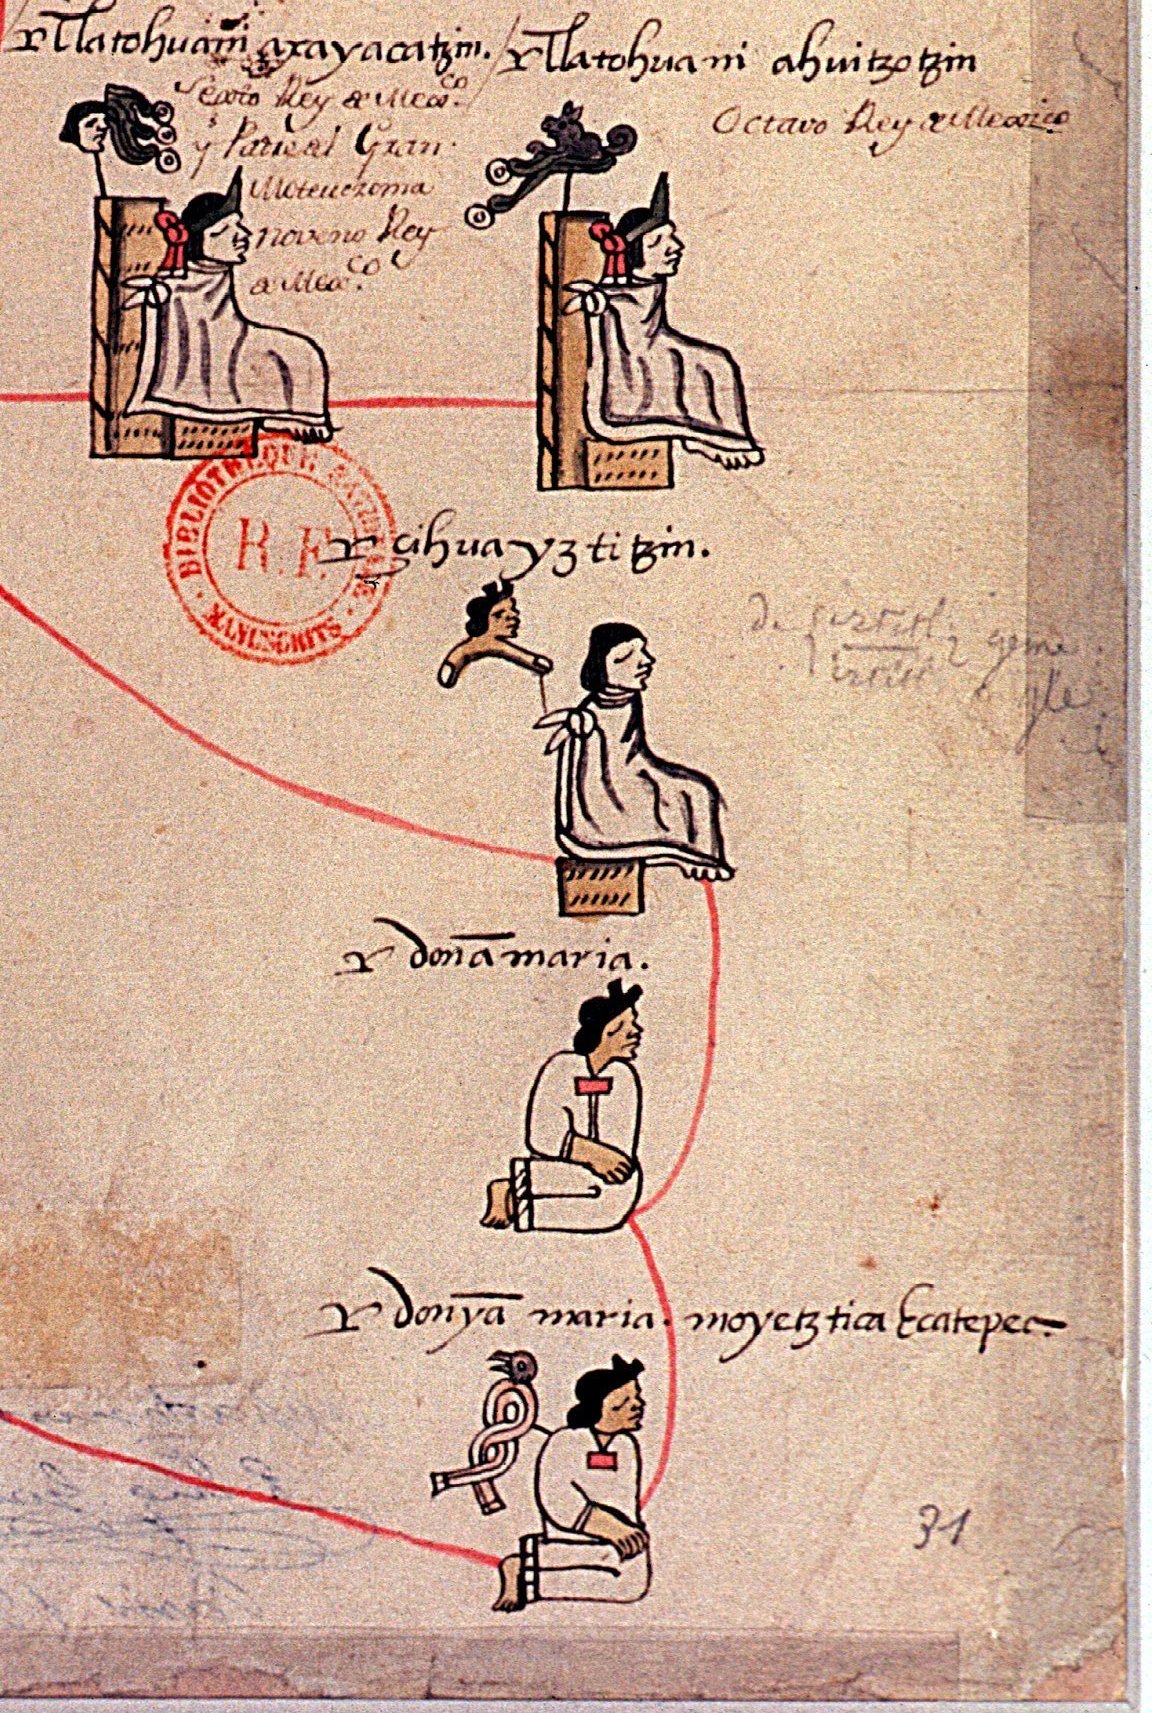 Tlatohuani axayacatzin.
Tlatohuani ahuitzotzin
Sexto Rey de Mexco.
y Padre del Gran
Moteuczoma
noveno Rey
de Mexco.
Octavo Rey de Mexico
BIBLIOTHEQUE NATIONALE
R.F.
MANUSCRITS
çihuayztitzin.
doña maria.
donya maria. moyetztica Ecatepec.
31